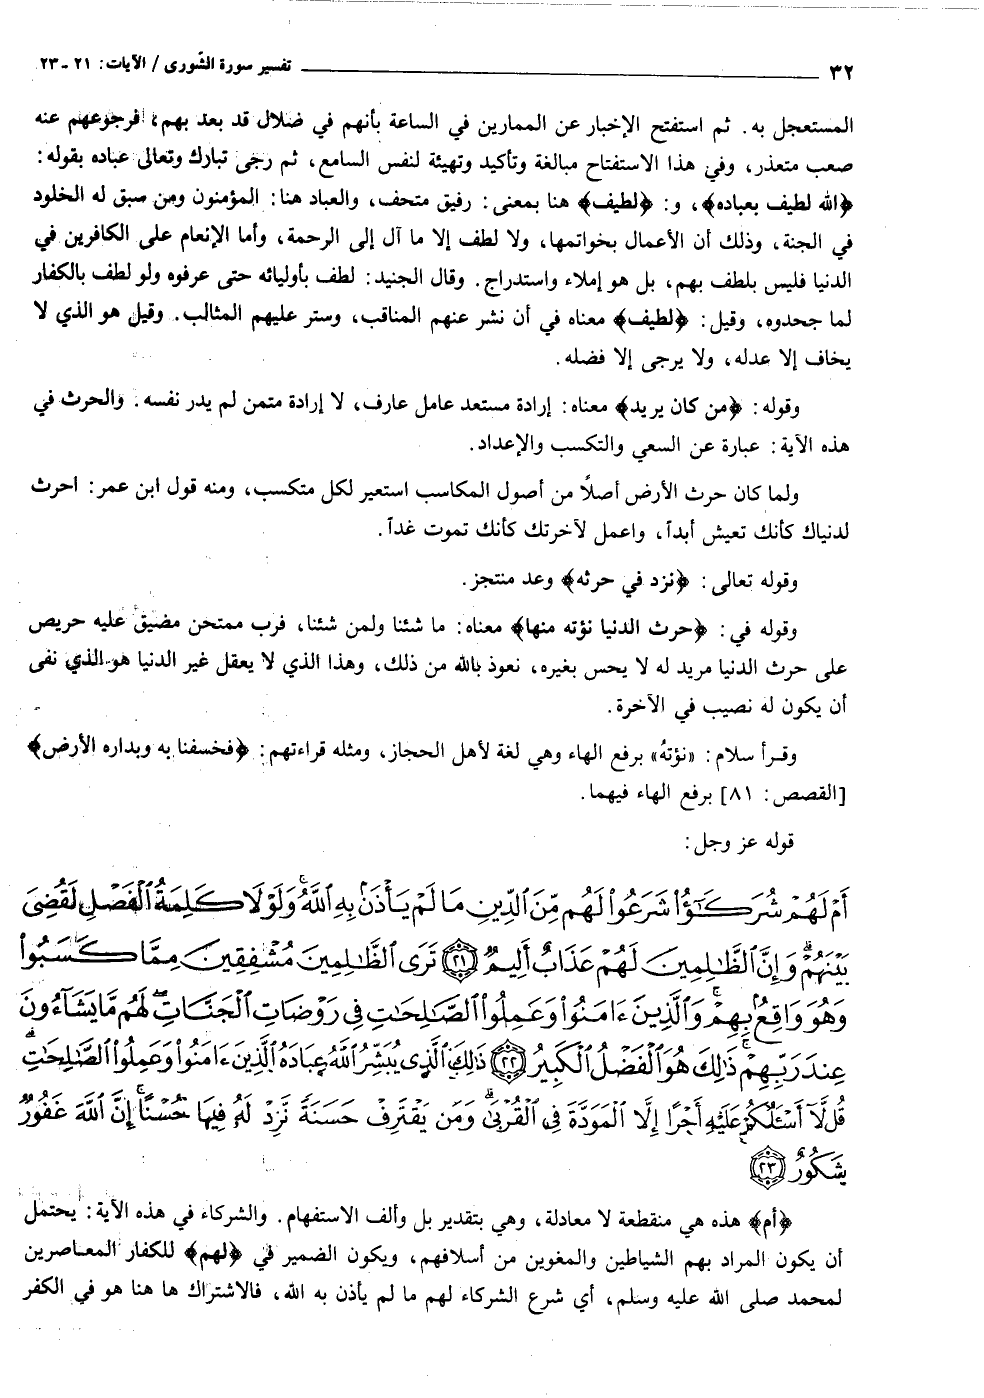 ٣٢ تفسير سورة الشّورى / الآيات: ٢١ - ٢٣
المستعجل به. ثم استفتح الإخبار عن الممارين في الساعة بأنهم في ضلال قد بعد بهم، فرجوعهم عنه
صعب متعذر، وفي هذا الاستفتاح مبالغة وتأكيد وتهيئة لنفس السامع، ثم رجى تبارك وتعالى عباده بقوله:
﴿الله لطيف بعباده﴾، و: ﴿لطيف﴾ هنا بمعنى: رفيق متحف، والعباد هنا: المؤمنون ومن سبق له الخلود
في الجنة، وذلك أن الأعمال بخواتمها، ولا لطف إلا ما آل إلى الرحمة، وأما الإنعام على الكافرين في
الدنيا فليس بلطف بهم، بل هو إملاء واستدراج. وقال الجنيد: لطف بأوليائه حتى عرفوه ولو لطف بالكفار
لما جحدوه، وقيل: ﴿لطيف﴾ معناه في أن نشر عنهم المناقب، وستر عليهم المثالب. وقيل هو الذي لا
يخاف إلا عدله، ولا يرجى إلا فضله.
وقوله: ﴿من كان يريد﴾ معناه: إرادة مستعد عامل عارف، لا إرادة متمن لم يدر نفسه. والحرث في
هذه الآية: عبارة عن السعي والتكسب والإعداد.
ولما كان حرث الأرض أصلاً من أصول المكاسب استعير لكل متكسب، ومنه قول ابن عمر: احرث
لدنياك كأنك تعيش أبداً، واعمل لآخرتك كأنك تموت غداً.
وقوله تعالى: ﴿نزد في حرثه﴾ وعد منتجز.
وقوله في: ﴿حرث الدنيا نؤته منها﴾ معناه: ما شئنا ولمن شئنا، فرب ممتحن مضيق عليه حريص
على حرث الدنيا مريد له لا يحس بغيره، نعوذ بالله من ذلك، وهذا الذي لا يعقل غير الدنيا هو الذي نفى
أن يكون له نصيب في الآخرة.
وقرأ سلام: «نؤتهُ» برفع الهاء وهي لغة لأهل الحجاز، ومثله قراءتهم: ﴿فخسفنا به وبداره الأرض﴾
[القصص: ٨١] برفع الهاء فيهما.
قوله عز وجل:
أَمْ لَهُمْ شُرَكَٰٓؤُا۟ شَرَعُوا۟ لَهُم مِّنَ ٱلدِّينِ مَا لَمْ يَأْذَنۢ بِهِ ٱللَّهُ ۚ وَلَوْلَا كَلِمَةُ ٱلْفَصْلِ لَقُضِىَ
بَيْنَهُمْ ۗ وَإِنَّ ٱلظَّٰلِمِينَ لَهُمْ عَذَابٌ أَلِيمٌ ﴿٢١﴾ تَرَى ٱلظَّٰلِمِينَ مُشْفِقِينَ مِمَّا كَسَبُوا۟
وَهُوَ وَاقِعٌۢ بِهِمْ ۗ وَٱلَّذِينَ ءَامَنُوا۟ وَعَمِلُوا۟ ٱلصَّٰلِحَٰتِ فِى رَوْضَاتِ ٱلْجَنَّاتِ ۖ لَهُم مَّا يَشَآءُونَ
عِندَ رَبِّهِمْ ۚ ذَٰلِكَ هُوَ ٱلْفَضْلُ ٱلْكَبِيرُ ﴿٢٢﴾ ذَٰلِكَ ٱلَّذِى يُبَشِّرُ ٱللَّهُ عِبَادَهُ ٱلَّذِينَ ءَامَنُوا۟ وَعَمِلُوا۟ ٱلصَّٰلِحَٰتِ ۗ
قُل لَّآ أَسْـَٔلُكُمْ عَلَيْهِ أَجْرًا إِلَّا ٱلْمَوَدَّةَ فِى ٱلْقُرْبَىٰ ۗ وَمَن يَقْتَرِفْ حَسَنَةً نَّزِدْ لَهُۥ فِيهَا حُسْنًا ۚ إِنَّ ٱللَّهَ غَفُورٌ
شَكُورٌ ﴿٢٣﴾
﴿أم﴾ هذه هي منقطعة لا معادلة، وهي بتقدير بل وألف الاستفهام. والشركاء في هذه الآية: يحتمل
أن يكون المراد بهم الشياطين والمغوين من أسلافهم، ويكون الضمير في ﴿لهم﴾ للكفار المعاصرين
لمحمد صلى الله عليه وسلم، أي شرع الشركاء لهم ما لم يأذن به الله، فالاشتراك ها هنا هو في الكفر